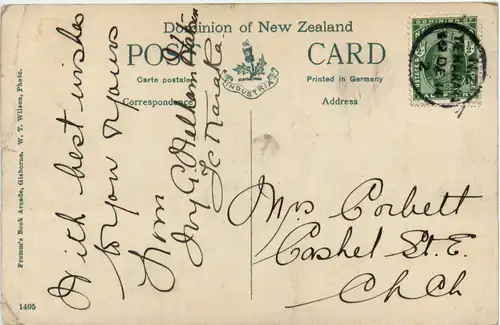 Dominion of New Zealand
POST CARD
Carte postale
Printed in Germany
Correspondence
Address
INDUSTRIA
With best wishes
to you & yours
from
Ivy G.
Mrs Corbett
Cashel St. E.
Ch Ch
Fromm's Book Arcade, Gisborne. W. T. Wilson, Photo.
1405
DOMINION OF